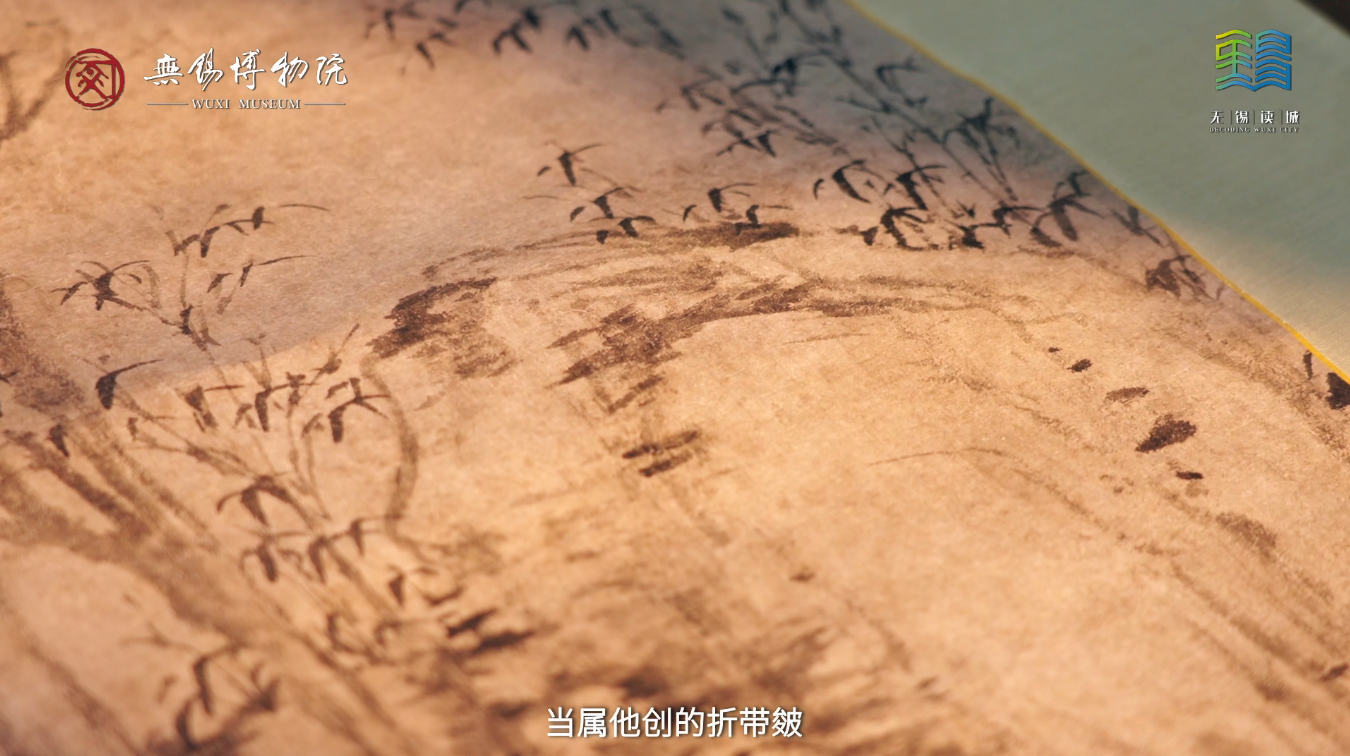 無錫博物院
WUXI MUSEUM
无锡读城
DECODING WUXI CITY
当属他创的折带皴